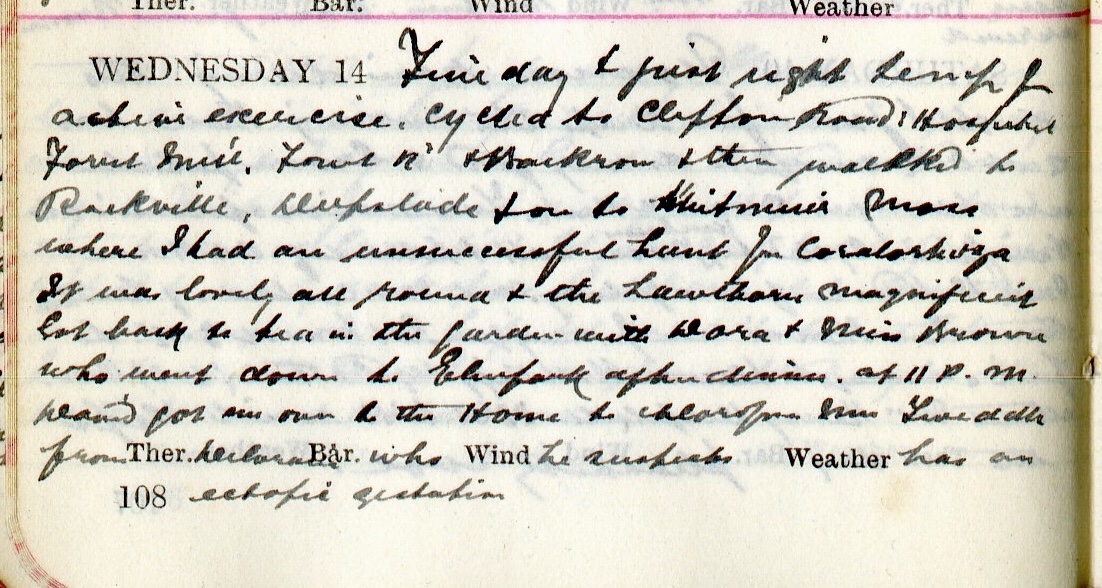 Ther. Bar. Wind Weather
WEDNESDAY 14 Fine day & just right temp for
active exercise. Cycled to Clifton Road: Hospital
Forest Mill. & then walked to
& on to Whitmuir Moss
where I had an unsuccessful hunt for Coralorhiza
It was lovely all round & the hawthorn magnificent
Got back to tea in the garden with Dora & Miss Brown
who went down to after dinner. at 11 P.M.
got me over to the Home to chloroform Mrs Tweedle
from Ther. Bar. who Wind he suspects Weather has an
108 ectopic gestation